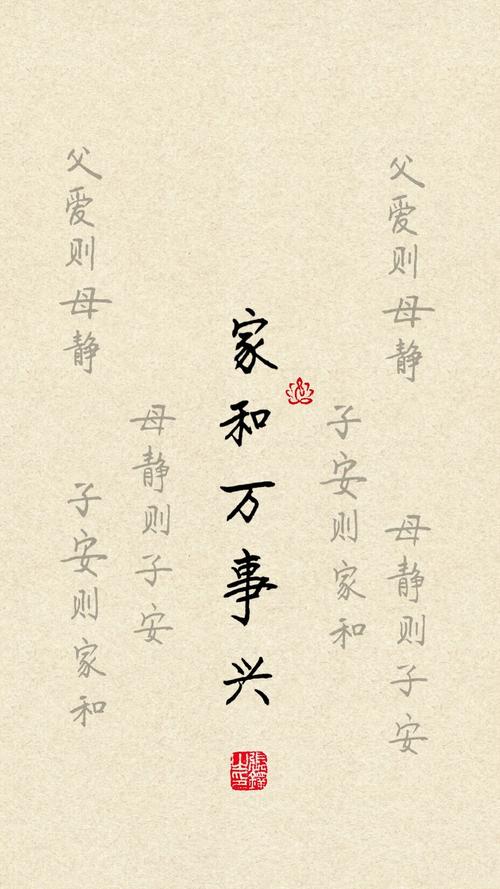 父爱则母静
母静则子安
子安则家和
家和万事兴
父爱则母静
母静则子安
子安则家和